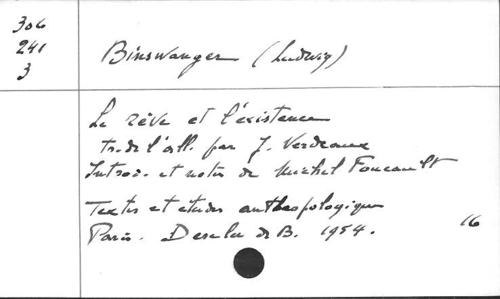 306
241
3
Binswanger (Ludwig)
Le rêve et l'existence
tr. de l'all. par J. Verdeaux
Introd. et notes de Michel Foucault
Textes et etudes anthropologiques
Paris. Desclee de B. 1954.
16